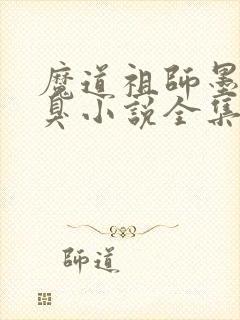 魔道祖師墨
臭小說全集
師道